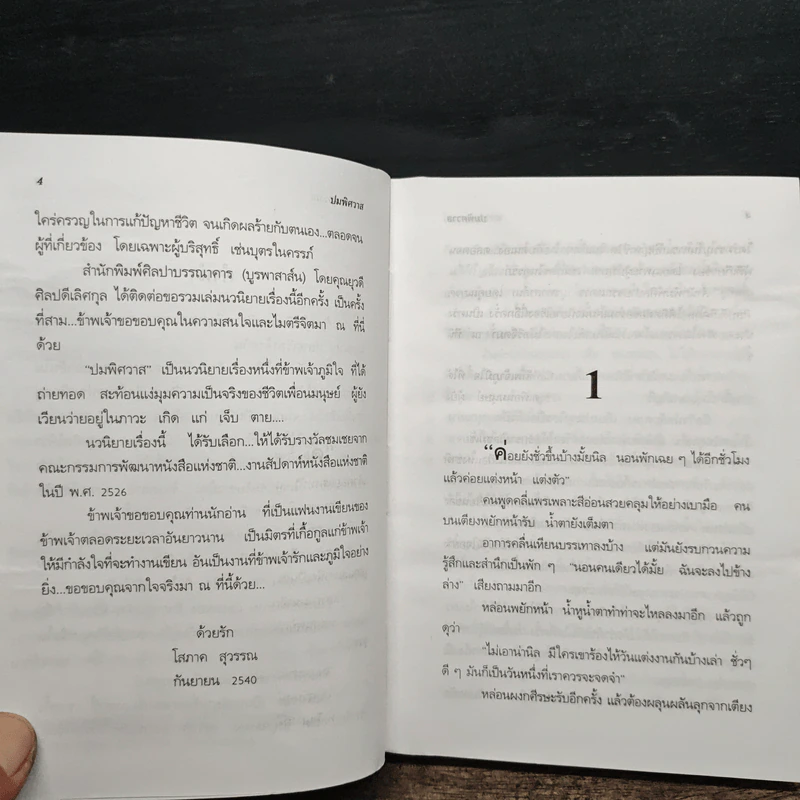 4
ปมพิศวาส
ใคร่ครวญในการแก้ปัญหาชีวิต จนเกิดผลร้ายกับตนเอง...ตลอดจน
ผู้ที่เกี่ยวข้อง โดยเฉพาะผู้บริสุทธิ์ เช่นบุตรในครรภ์
สำนักพิมพ์ศิลปาบรรณาคาร (บูรพาสาส์น) โดยคุณยุวดี
ศิลปดีเลิศกุล ได้ติดต่อขอรวมเล่มนวนิยายเรื่องนี้อีกครั้ง เป็นครั้ง
ที่สาม...ข้าพเจ้าขอขอบคุณในความสนใจและไมตรีจิตมา ณ ที่นี้
ด้วย
"ปมพิศวาส" เป็นนวนิยายเรื่องหนึ่งที่ข้าพเจ้าภูมิใจ ที่ได้
ถ่ายทอด สะท้อนแง่มุมความเป็นจริงของชีวิตเพื่อนมนุษย์ ผู้ยัง
เวียนว่ายอยู่ในภาวะ เกิด แก่ เจ็บ ตาย....
นวนิยายเรื่องนี้ ได้รับเลือก...ให้ได้รับรางวัลชมเชยจาก
คณะกรรมการพัฒนาหนังสือแห่งชาติ...งานสัปดาห์หนังสือแห่งชาติ
ในปี พ.ศ. 2526
ข้าพเจ้าขอขอบคุณท่านนักอ่าน ที่เป็นแฟนงานเขียนของ
ข้าพเจ้าตลอดระยะเวลาอันยาวนาน เป็นมิตรที่เกื้อกูลแก่ข้าพเจ้า
ให้มีกำลังใจที่จะทำงานเขียน อันเป็นงานที่ข้าพเจ้ารักและภูมิใจอย่าง
ยิ่ง...ขอขอบคุณจากใจจริงมา ณ ที่นี้ด้วย...
ด้วยรัก
โสภาค สุวรรณ
กันยายน 2540
1
"ค่อยยังชั่วขึ้นบ้างมั้ยนิล นอนพักเฉย ๆ ได้อีกชั่วโมง
แล้วค่อยแต่งหน้า แต่งตัว"
คนพูดคลี่แพรเพลาะสีอ่อนสวยคลุมให้อย่างเบามือ คน
บนเตียงพยักหน้ารับ น้ำตายังเต็มตา
อาการคลื่นเหียนบรรเทาลงบ้าง แต่มันยังรบกวนความ
รู้สึกและสำนึกเป็นพัก ๆ "นอนคนเดียวได้มั้ย ฉันจะลงไปข้าง
ล่าง" เสียงถามมาอีก
หล่อนพยักหน้า น้ำหูน้ำตาทำท่าจะไหลลงมาอีก แล้วถูก
ดุว่า
"ไม่เอาน่านิล มีใครเขาร้องไห้วันแต่งงานกันบ้างเล่า ชั่วๆ
ดี ๆ มันก็เป็นวันหนึ่งที่เราควรจะจดจำ"
หล่อนผงกศีรษะรับอีกครั้ง แล้วต้องผลุนผลันลุกจากเตียง